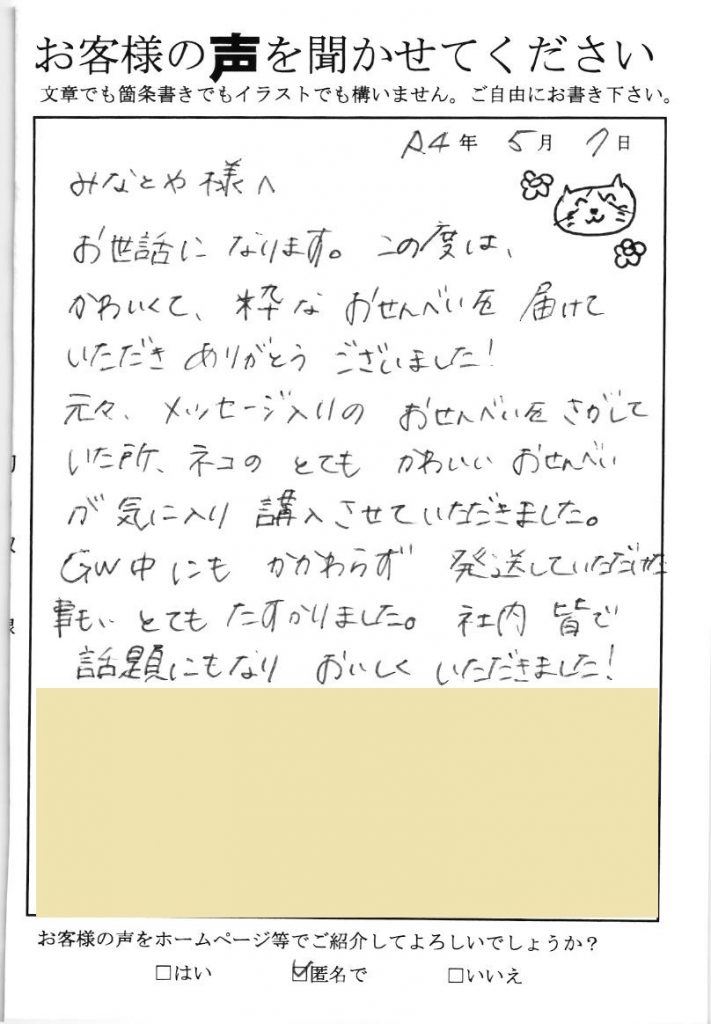 お客様の声を聞かせてください
文章でも箇条書きでもイラストでも構いません。ご自由にお書き下さい。
R4年 5月 7日
みなとや様へ
お世話に なります。この度は、
かわいくて、粋な おせんべいを 届けて
いただき ありがとう ございました!
元々、メッセージ入りの おせんべいを さがして
いた所、ネコの とても かわいい おせんべい
が 気に入り 講入させていただきました。
GW中にも かかわらず 発送していただけた
事も、とても たすかりました。 社内 皆で
話題にもなり おいしく いただきました!
お客様の声をホームページ等でご紹介してよろしいでしょうか?
□はい ☑匿名で □いいえ